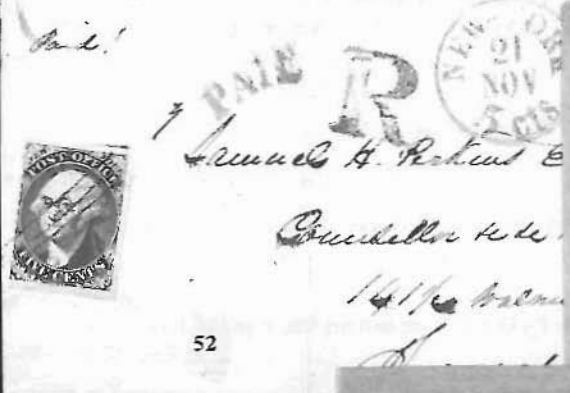 Paid!
PAID
R
NEW-YORK
21
NOV
5 cts
POST OFFICE
FIVE CENTS
Samuel H. Perkins E
Counsellor
52